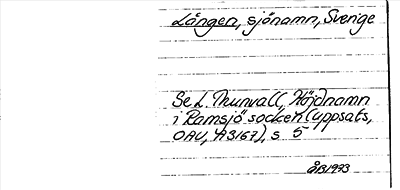 Lången, sjönamn, Sverige
Se L. Murvall, Höjdnamn
i Ramsjö socken (uppsats,
OAU, 43167), s. 5
ÅB1993